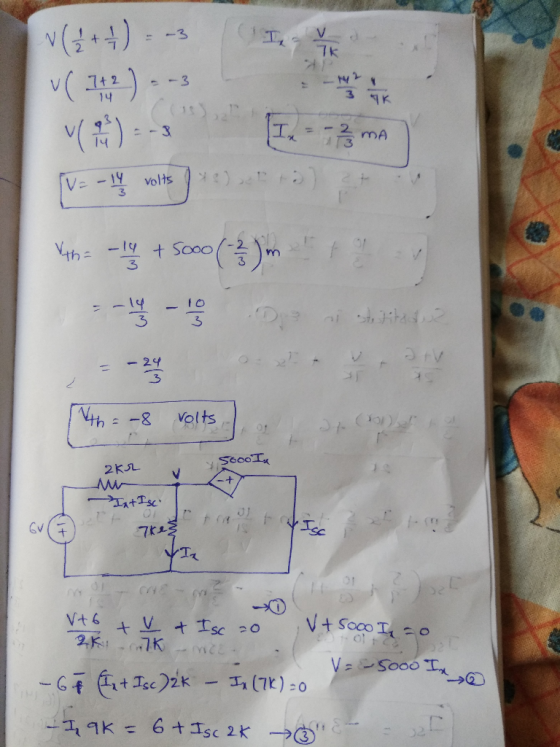 V(1/2 + 1/7) = -3
V((7+2)/14) = -3
V(9³/14) = -3
V = -14/3 volts
Iₓ = V/7K
= -14²/3 1/7K
Iₓ = -2/3 mA
Vth = -14/3 + 5000(-2/3)m
= -14/3 - 10/3
= -24/3
Vth = -8 volts
2KΩ V 5000Iₓ
- +
Iₓ+Isc
6V - + 7KΩ Isc
Iₓ
V+6/2K + V/7K + Isc = 0 → ①
V + 5000Iₓ = 0
V = -5000Iₓ → ②
-6 - (Iₓ+Isc)2K - Iₓ(7K) = 0
-Iₓ 9K = 6 + Isc 2K → ③